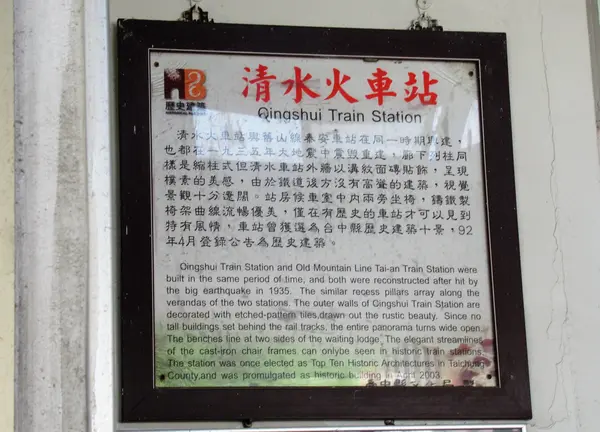 清水火車站
歷史建築
Qingshui Train Station
清水火車站與舊山線泰安車站在同一時期興建，
也都在一九三五年大地震中震毀重建，廊下列柱同
樣是縮柱式但清水車站外牆以溝紋面磚貼飾，呈現
樸素的美感，由於鐵道後方沒有高聳的建築，視覺
景觀十分遼闊。站房候車室中內兩旁坐椅，鑄鐵製
椅架曲線流暢優美，僅在有歷史的車站才可以見到
特有風情，車站曾獲選為台中縣歷史建築十景，92
年4月登錄公告為歷史建築。
Qingshui Train Station and Old Mountain Line Tai-an Train Station were
built in the same period of time, and both were reconstructed after hit by
the big earthquake in 1935. The similar recess pillars array along the
verandas of the two stations. The outer walls of Qingshui Train Station are
decorated with etched-pattern tiles,drawn out the rustic beauty. Since no
tall buildings set behind the rail tracks, the entire panorama turns wide open.
The benches line at two sides of the waiting lodge. The elegant streamlines
of the cast-iron chair frames can onlybe seen in historic train stations.
The station was once elected as Top Ten Historic Architectures in Taichung
County,and was promulgated as historic building in April 2003.